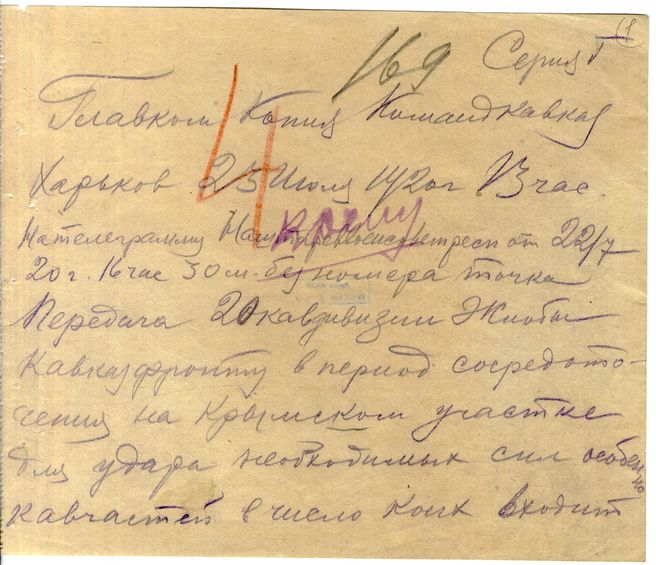 169 Серия Г
Главком Копия Командкавказ
4
Харьков 23 Июля 1920 г 13 час.
Крыму
На телеграмму от 22/7
20 г. 16 час 30 м без номера точка
Передача 20 кавдивизии Жлобы
Кавказфронту в период сосредото-
чения на Крымском участке
для удара необходимых сил особенно
кавчастей в число коих входит